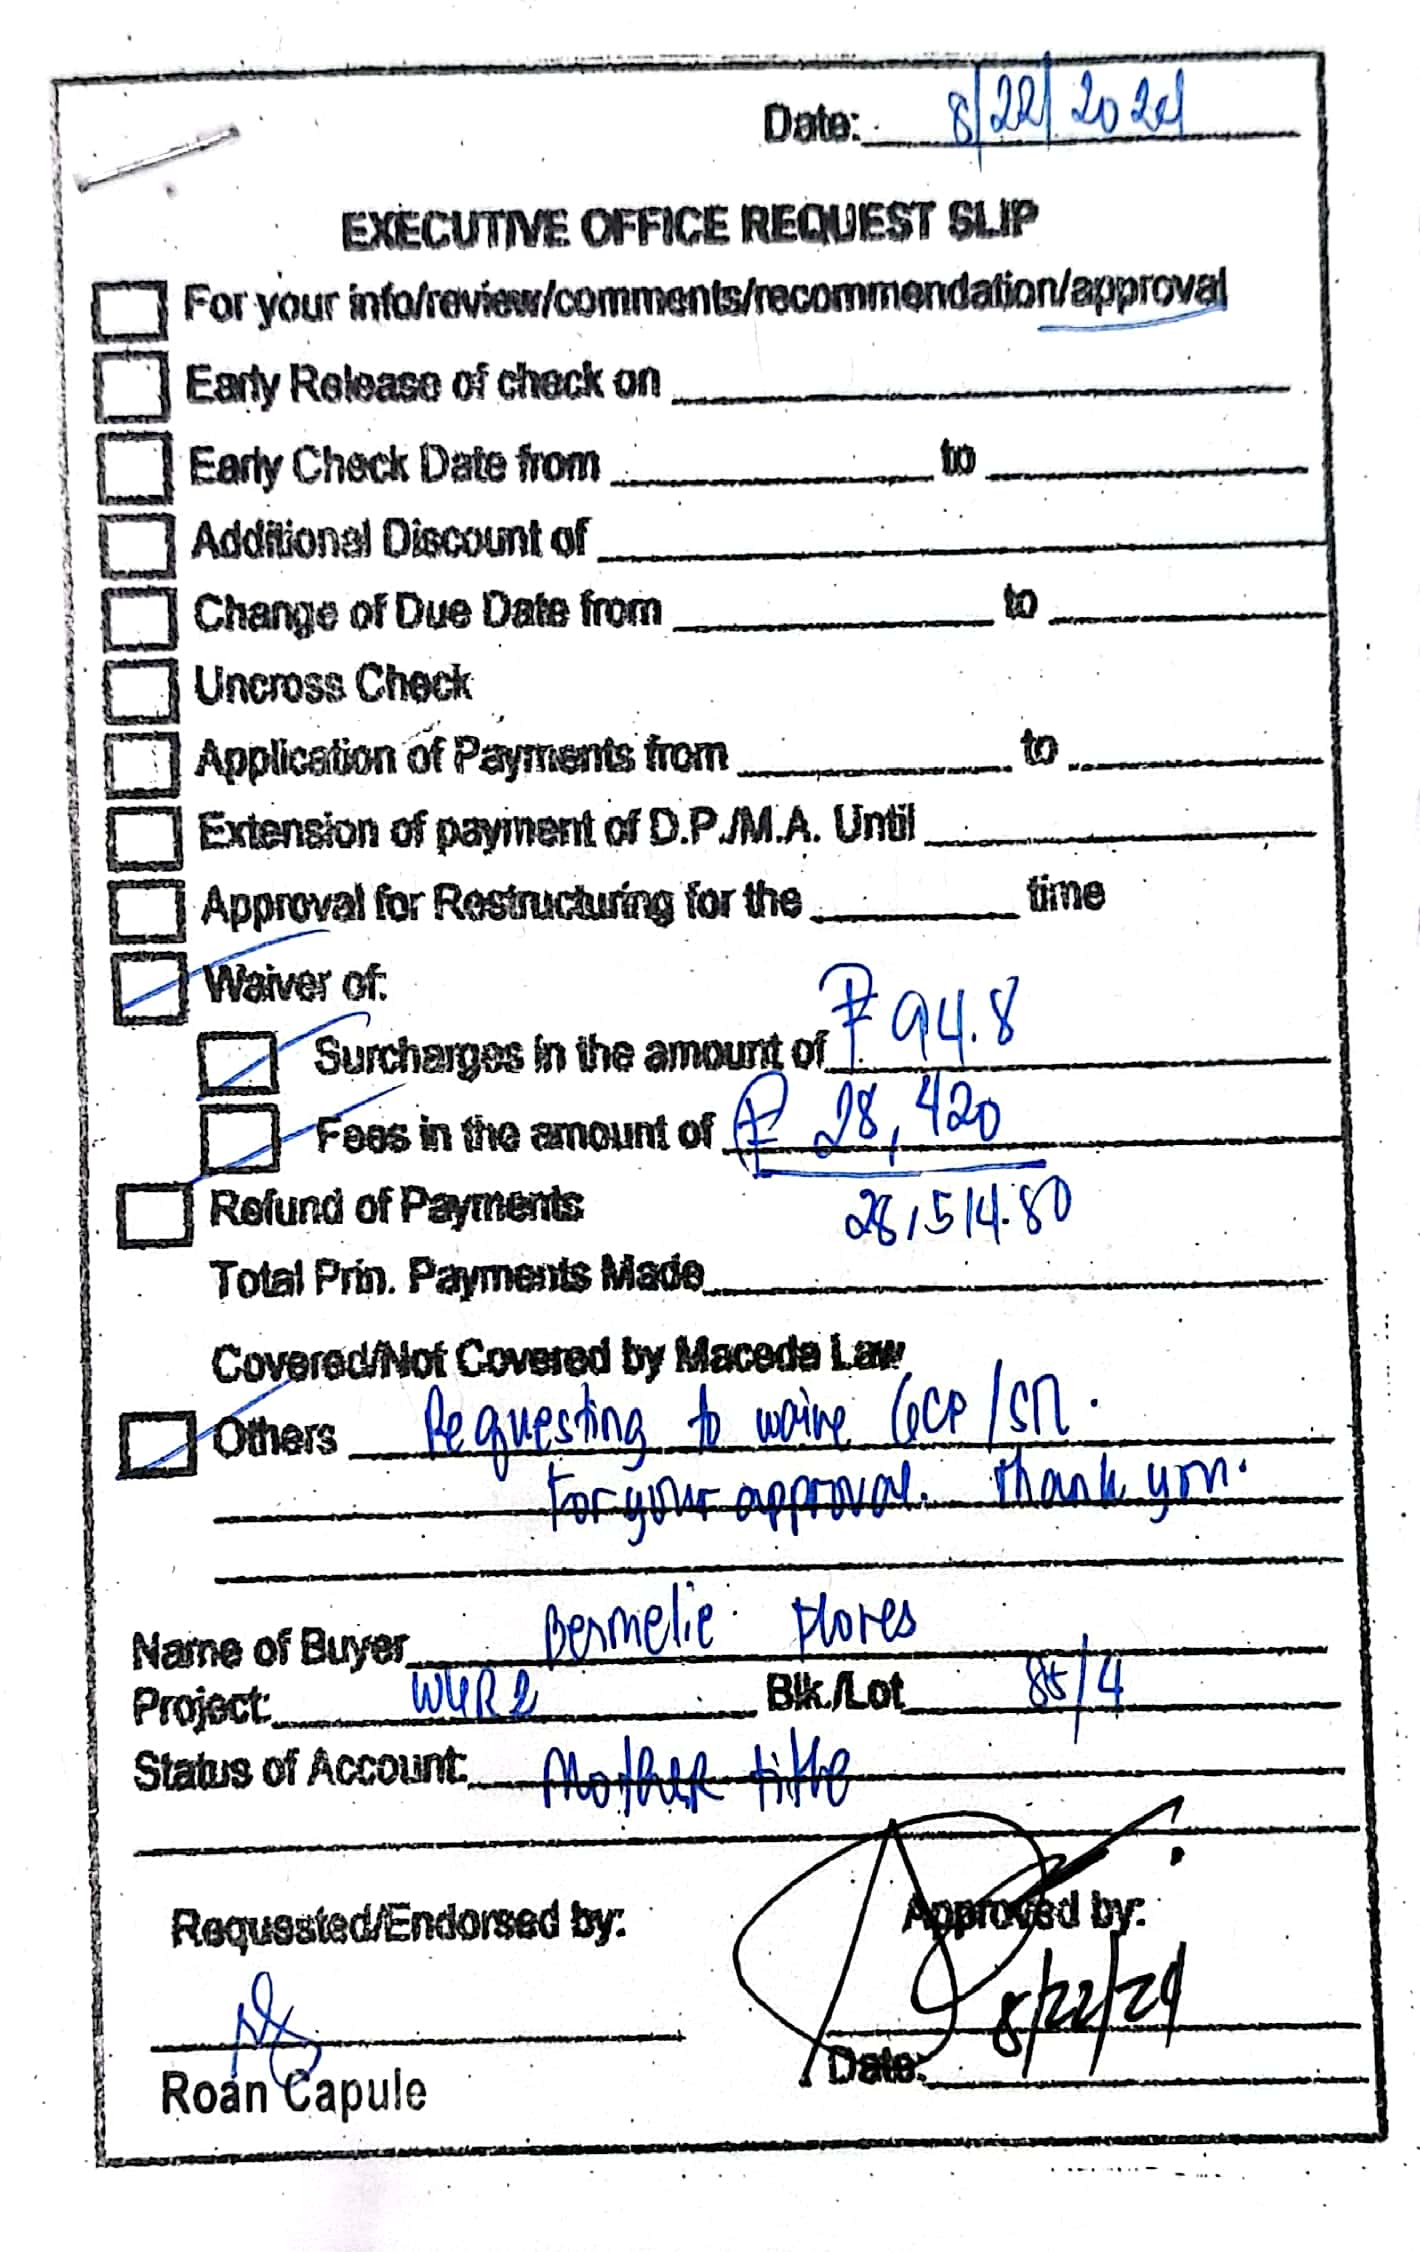 Date: 8/22/2024
EXECUTIVE OFFICE REQUEST SLIP
For your info/review/comments/recommendation/approval
Early Release of check on
Early Check Date from to
Additional Discount of
Change of Due Date from to
Uncross Check
Application of Payments from to
Extension of payment of D.P./M.A. Until
Approval for Restructuring for the time
Waiver of:
Surcharges in the amount of ₱ 94.8
Fees in the amount of ₱ 28,420
28,514.80
Refund of Payments
Total Prin. Payments Made
Covered/Not Covered by Maceda Law
Others Requesting to waive
For your approval. Thank you.
Name of Buyer Bermelie Flores
Project: WGR2 Blk./Lot 85/4
Status of Account: Mother title
Requested/Endorsed by: Approved by:
8/22/24
Date:
Roan Capule